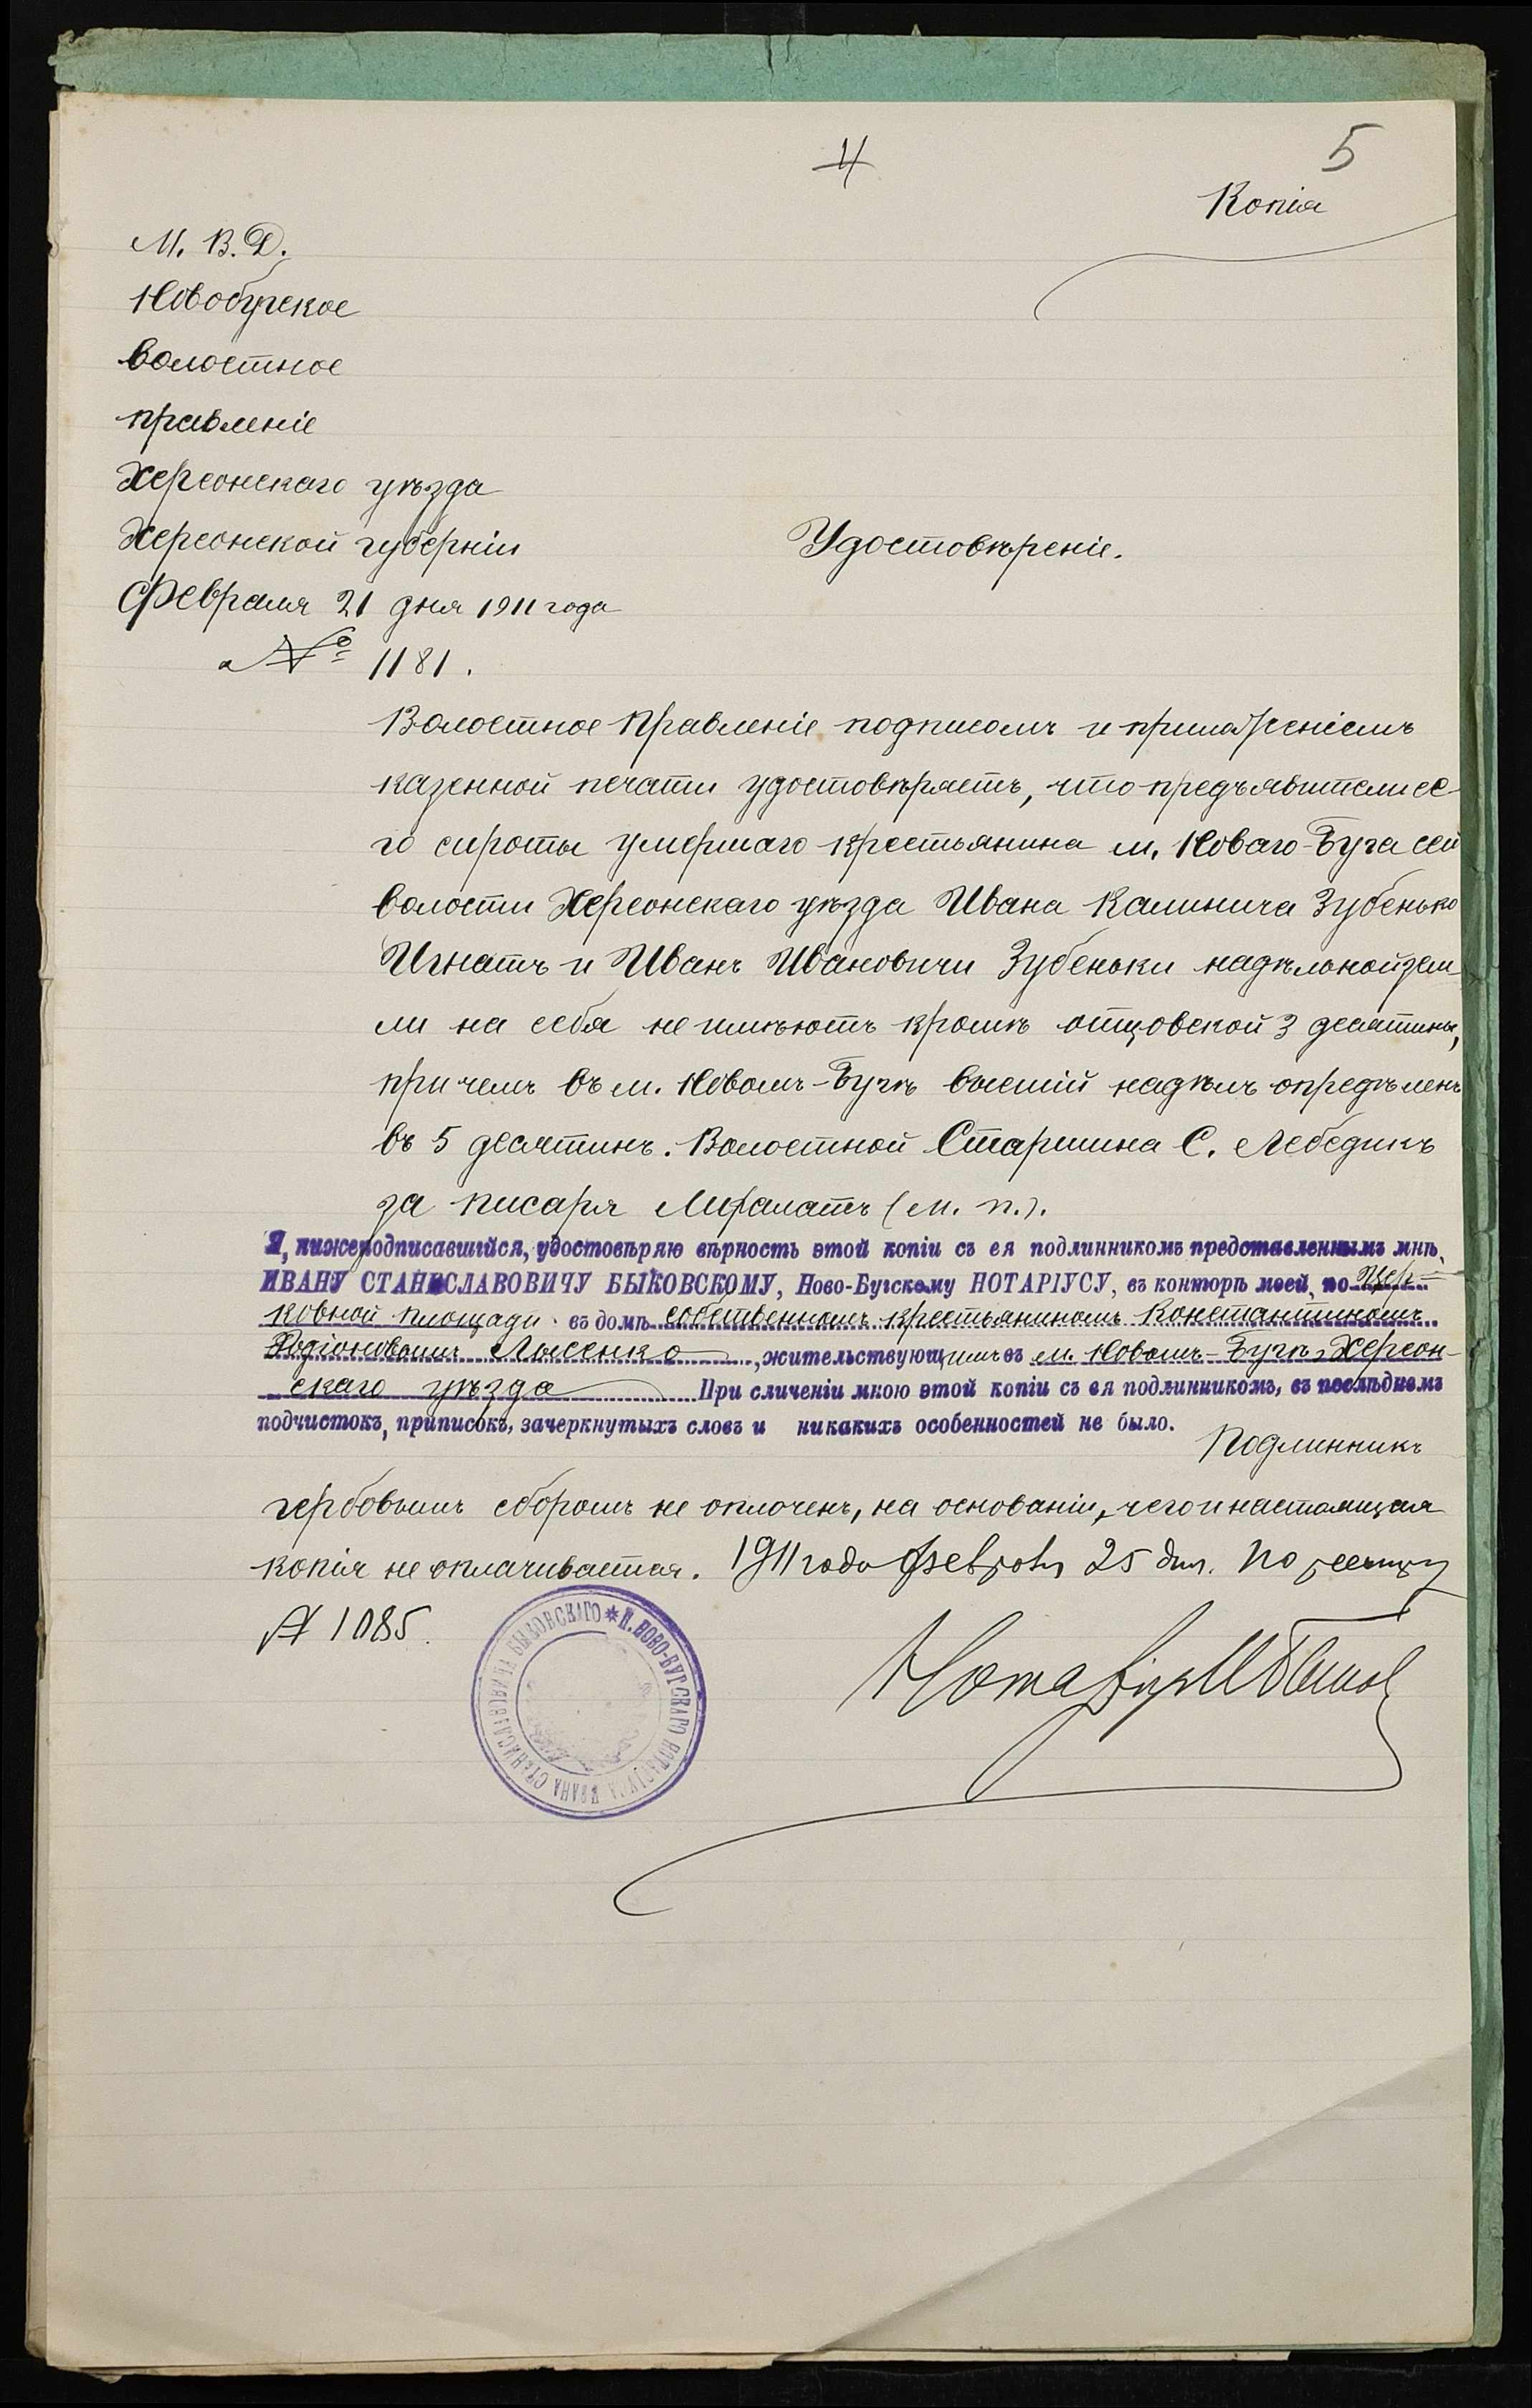 4
5
Копія
М. В. Д.
Новобугское
волостное
правленіе
Херсонскаго уѣзда
Херсонской губерніи
Удостовѣреніе.
Февраля 21 дня 1911 года
№ 1181.
Волостное Правленіе подписомъ и приложеніемъ
казенной печати удостовѣряетъ, что предъявители се-
го сироты умершаго крестьянина м. Новаго-Буга сей
волости Херсонскаго уѣзда Ивана Калинича Зубенько
Игнатъ и Иванъ Ивановичи Зубеньки надѣльной зем-
ли на себя не имѣютъ кромѣ отцовской 3 десятины,
при чемъ въ м. Новомъ-Бугѣ высшій надѣлъ опредѣленъ
въ 5 десятинъ. Волостной Старшина С. Лебедикъ
за писаря (М. п.).
Я, нижеподписавшійся, удостовѣряю вѣрность этой копіи съ ея подлинникомъ представленнымъ мнѣ,
ИВАНУ СТАНИСЛАВОВИЧУ БЫКОВСКОМУ, Ново-Бугскому НОТАРІУСУ, въ конторѣ моей, по Цер-
ковной площади въ домѣ собственномъ крестьяниномъ Константиномъ
Родіоновымъ Лысенко, жительствующимъ въ м. Новомъ-Бугѣ, Херсон-
скаго уѣзда При сличеніи мною этой копіи съ ея подлинникомъ, въ послѣднемъ
подчистокъ, приписокъ, зачеркнутыхъ словъ и никакихъ особенностей не было.
Подлинникъ
гербовымъ сборомъ не оплоченъ, на основаніи, чего и настоящая
копія не оплачивается. 1911 года февраля 25 дня. По реестру
№ 1085.
Нотаріусъ И Быков
* П. НОВО-БУГСКАГО НОТАРІУСА ИВАНА СТАНИСЛАВОВИЧА БЫКОВСКАГО